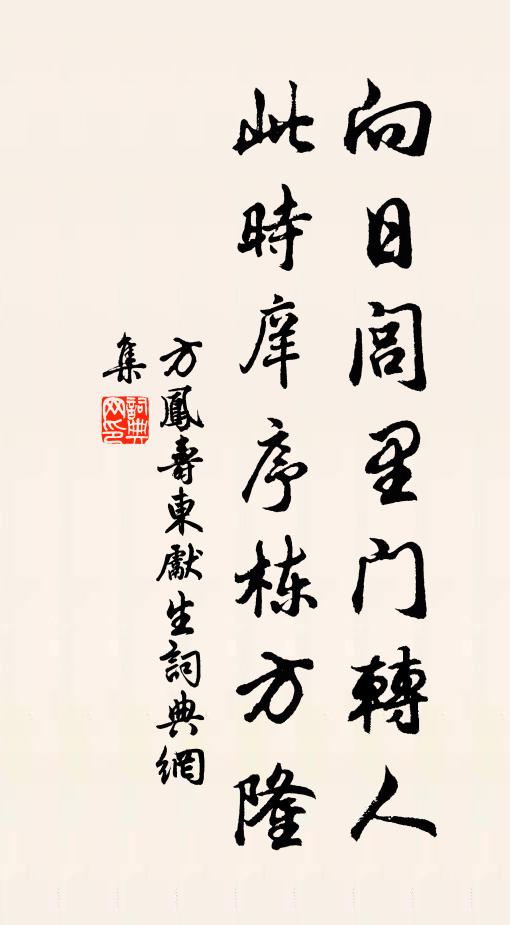 向日閭里門轉人
此時庠序棟方隆
方鳳壽東獻生詞典網
集
詞典
网印